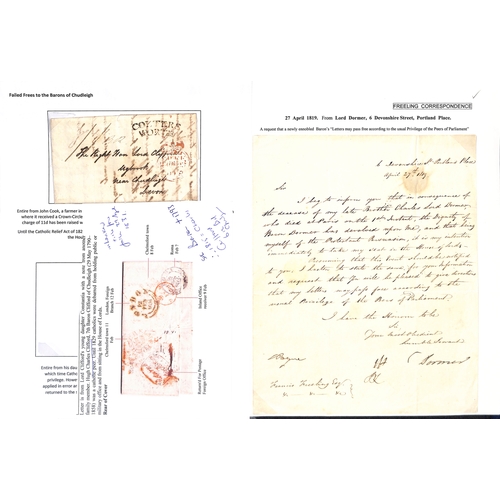 Failed Frees to the Barons of Chudleigh
COTTERS
WORTH
The Right Hon Lord Clifford
Ugbrook
Near Chudleigh
Devon
Entire from John Cook, a farmer in
where it received a Crown-Circle
charge of 11d has been raised
Until the Catholic Relief Act of 182
the Hou
Entire from his
which time Catho
privilege. Howe
applied in error a
returned to the
Letter is from Lord Clifford's young daughter Constantia with a note from
family member. Hugh Charles Clifford, 7th Baron Clifford of Chudleigh (29 May 1790-
1858) was a catholic peer. Until 1829 catholics were debarred from holding public or
military office and from sitting in the House of Lords.
Rear of Cover
Cheltenham town 11
Feb
London, Foreign
Branch 12 Feb
Cheltenham town
8 Feb
Rome
Feb ?
Inland Office
number 9 Feb
Returned For Postage
Foreign Office
FREELING CORRESPONDENCE
27 April 1819. From Lord Dormer, 6 Devonshire Street, Portland Place.
A request that a newly ennobled Baron's "Letters may pass free according to the usual Privilege of the Peers of Parliament"
6 Devonshire St Portland Place
April 27th 1819
Sir
I beg to inform you that in consequence of
the decease of my late Brother Charles Lord Dormer,
who died at Paris on the instant, the Dignity of
Baron Dormer has devolved upon me, and that being
myself of the Protestant Persuasion, it is my intention
immediately to take my seat in the House of Lords.
Presuming that the Event should be notified
to you, I hasten to state the same for your information
and request that you will be pleased to give directions
that my letters may pass free according to the
usual Privilege of the Peers of Parliament.
I have the Honour to be
Sir
Your most obedient
humble Servant
Dormer
Francis Freeling Esqr